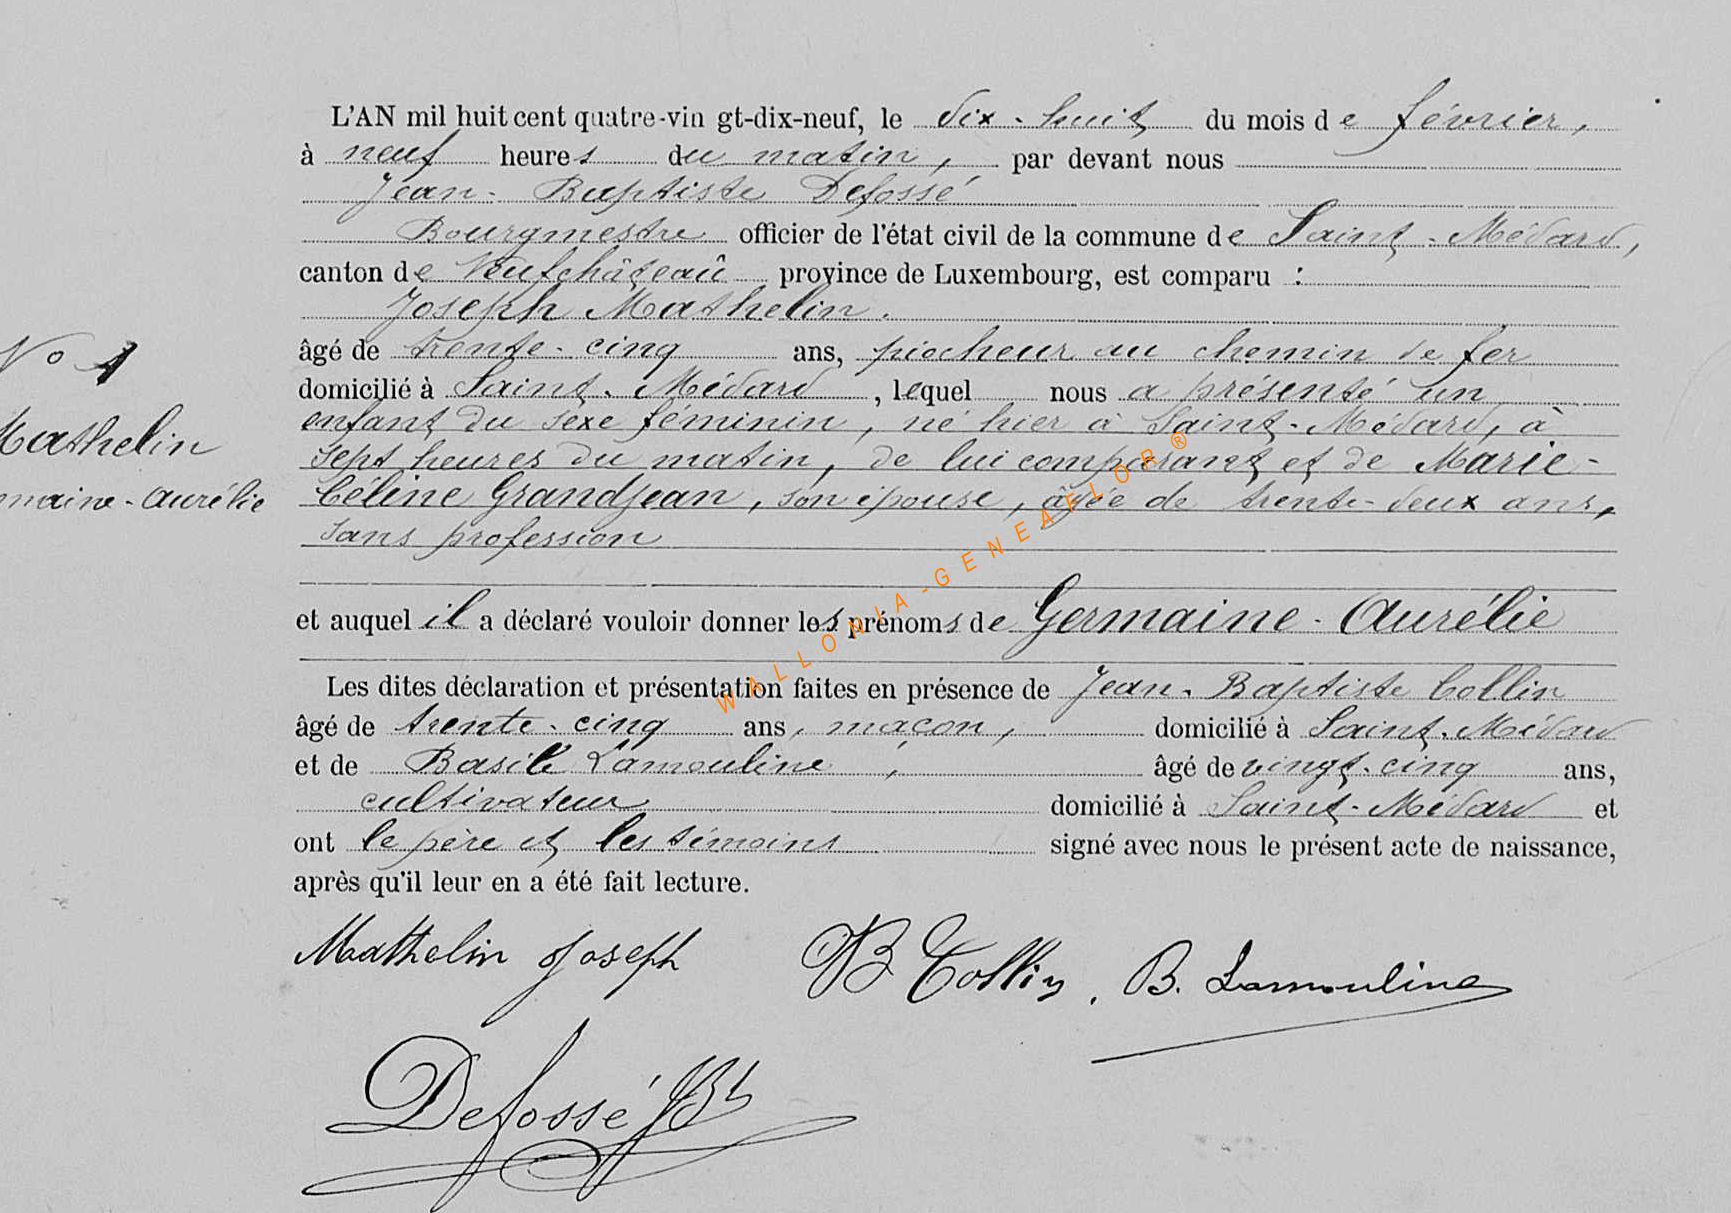 L'AN mil huit cent quatre-vingt-dix-neuf, le dix-huit du mois de février,
à neuf heures du matin, par devant nous
Jean-Baptiste Defossé
Bourgmestre officier de l'état civil de la commune de Saint-Médard,
canton de Neufchâteau province de Luxembourg, est comparu :
Joseph Mathelin.
âgé de trente-cinq ans, piocheur au chemin de fer
domicilié à Saint-Médard, lequel nous a présenté un
enfant du sexe féminin, né hier à Saint-Médard, à
sept heures du matin, de lui comparant et de Marie-
Céline Grandjean, son épouse, âgée de trente-deux ans,
sans profession
et auquel il a déclaré vouloir donner les prénoms de Germaine-Aurélie
Les dites déclaration et présentation faites en présence de Jean-Baptiste Collin
âgé de trente-cinq ans, maçon, domicilié à Saint-Médard
et de Basile Lamouline, âgé de vingt-cinq ans,
cultivateur domicilié à Saint-Médard et
ont le père et les témoins signé avec nous le présent acte de naissance,
après qu'il leur en a été fait lecture.
No 1
Mathelin
maine-Aurélie
Mathelin Joseph JB Collin, B. Lamouline
Defossé JBt
WALLONIA-GENEAFLOR®